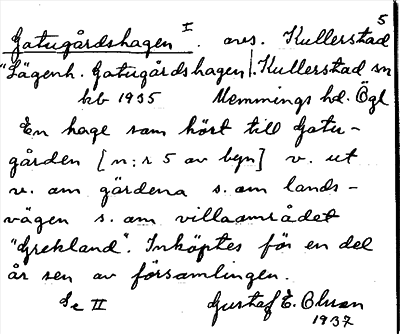 5
Gatugårdshagen I. avs. Kullerstad
"Lägenh. Gatugårdshagen". Kullerstad sn
kb 1935 Memmings hd. Ögl
En hage som hört till Gatu-
gården [n:r 5 av byn] v. ut
v. om gärdena s. om lands-
vägen s. om villaområdet
"Grekland". Inköptes för en del
år sen av församlingen.
Se II Gustaf E. Olsson
1937